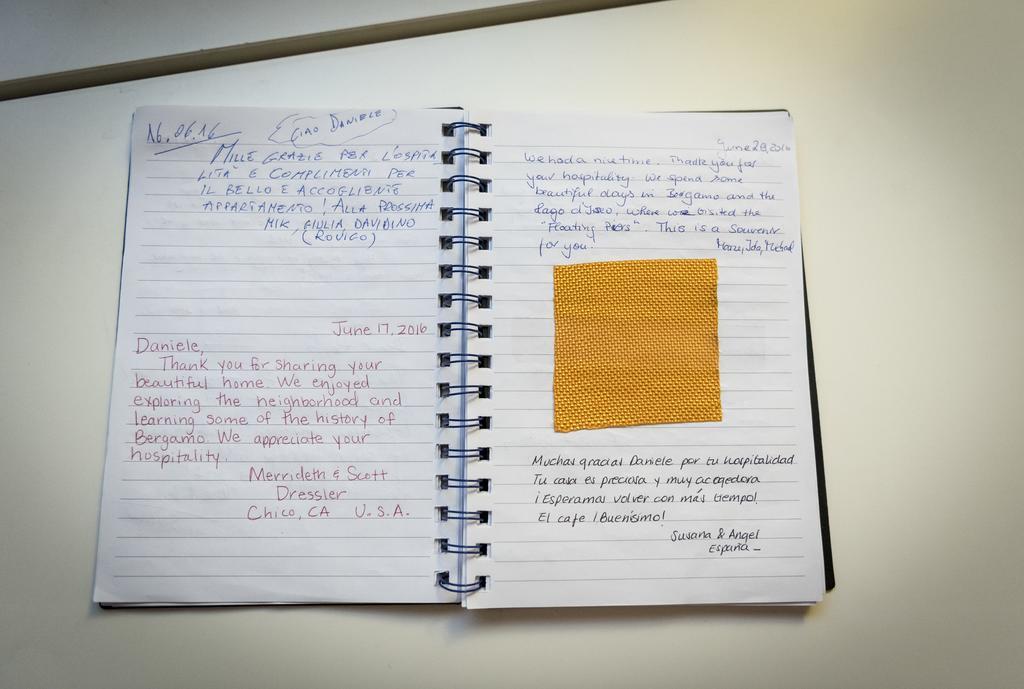 16.06.16
CIAO DANIELE
MILLE GRAZIE PER L'OSPITA
LITA' E COMPLIMENTI PER
IL BELLO E ACCOGLIENTE
APPARTAMENTO! ALLA PROSSIMA
MIK, GIULIA, DAVIDINO
(ROVIGO)
June 17, 2016
Daniele,
Thank you for sharing your
beautiful home. We enjoyed
exploring the neighborhood and
learning some of the history of
Bergamo. We appreciate your
hospitality.
Merrideth & Scott
Dressler
Chico, CA U.S.A.
June 28, 2016
We had a nice time. Thank you for
your hospitality. We spend some
beautiful days in Bergamo and the
Lago d'Iseo, where we visited the
"Floating Piers". This is a souvenir
for you.
Muchas gracias Daniele por tu hospitalidad
Tu casa es preciosa y muy acogedora
¡Esperamos volver con más tiempo!
El cafe ¡Buenísimo!
Susana & Angel
España -